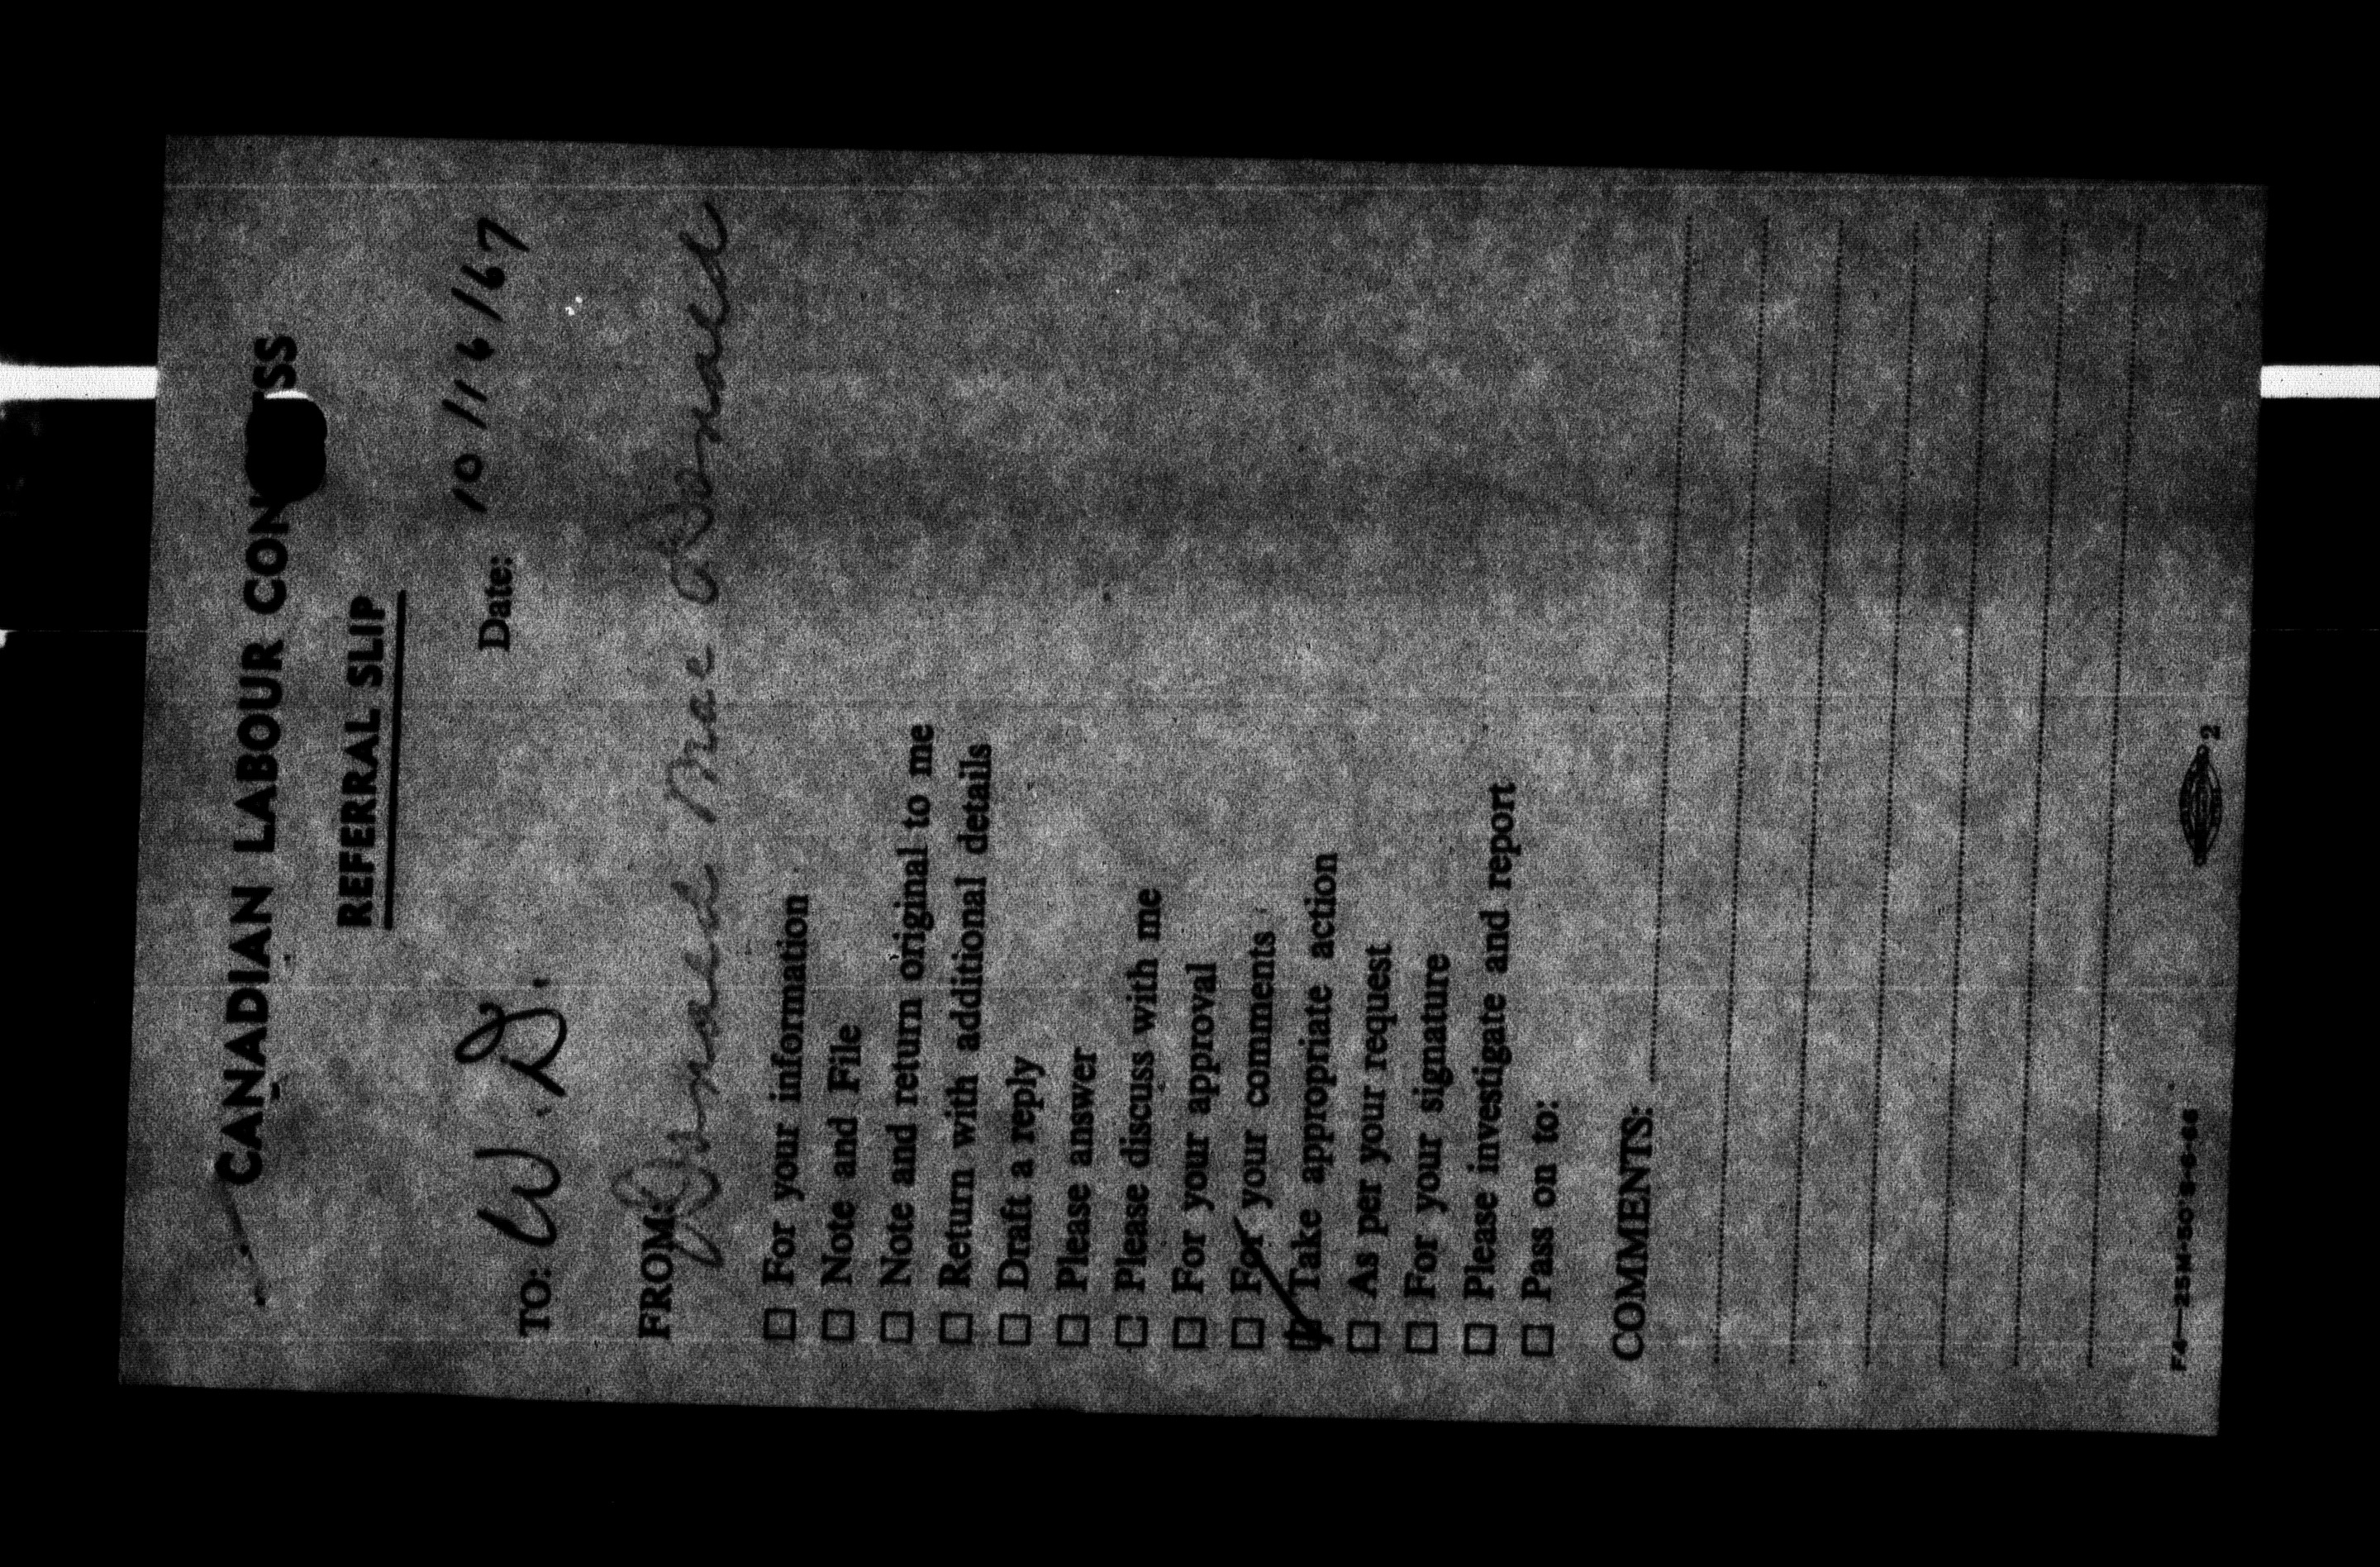 CANADIAN LABOUR CON SS
REFERRAL SLIP
Date: 10/16/67
TO: W.D.
FROM: Donald MacDonald
☐ For your information
☐ Note and File
☐ Note and return original to me
☐ Return with additional details
☐ Draft a reply
☐ Please answer
☐ Please discuss with me
☐ For your approval
☐ For your comments
☑ Take appropriate action
☐ As per your request
☐ For your signature
☐ Please investigate and report
☐ Pass on to:
COMMENTS:
2